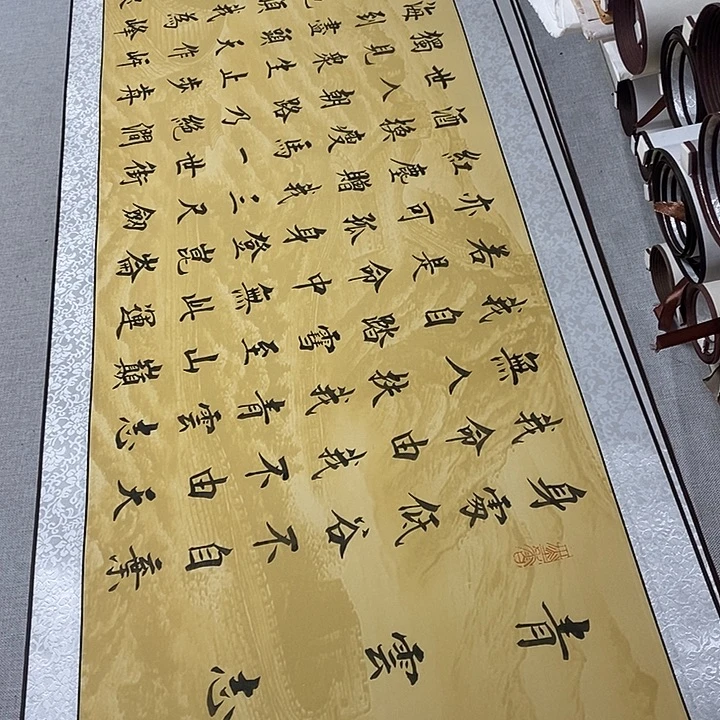 青雲志
身處低谷不自棄
我命由我不由天
無人扶我青雲志
我自踏雪至山巔
若是命中無此運
亦可孤身登崑崙
紅塵贈我三尺劍
酒換瘦馬一世街
世人朝路乃絕澗
獨見衆生止步前
海到盡頭天作岸
頂我為峰